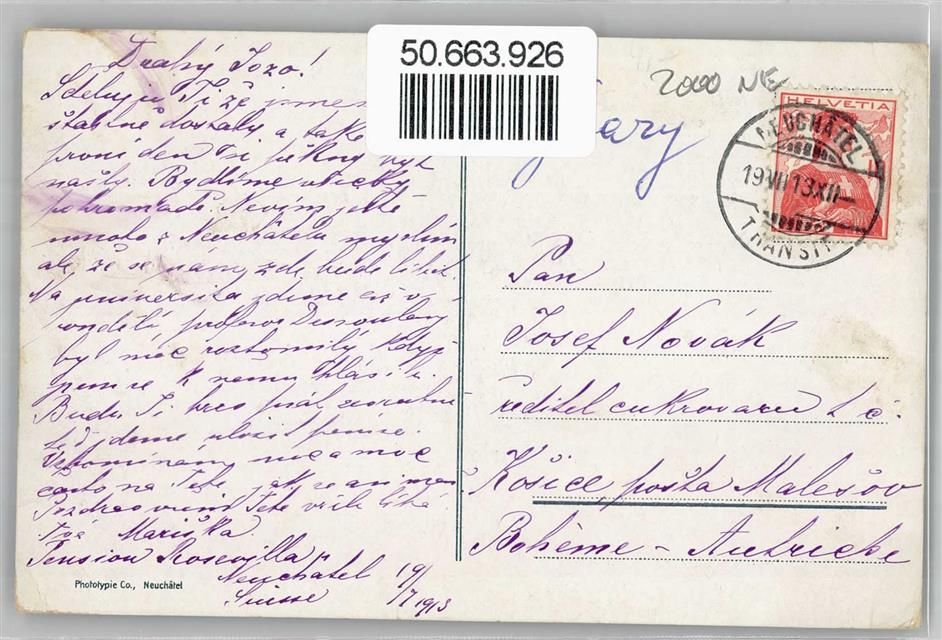 50.663.926
2000 NE
HELVETIA
NEUCHÂTEL
19 VII 13 XII
TRANSIT
Drahý Jozo!
Sděluji Ti že jsme
šťastně dostaly a také
první den si pěkný být
našly. Bydlíme všecky
pohromadě. Nevím ještě
mnoho z Neuchâtelu myslím
ale, že se nám zde bude líbit.
Na universitu jdeme až v
pondělí, profesor
byl moc roztomilý když
jsme se k němu hlásily.
Budu Ti brzo psát
teď jdeme uložit peníze.
Vzpomínám moc a moc
často na Tebe, jak se asi máš
Pozdravuji Tebe líbá
Tvá Mariška.
Pension Rosevilla
Neuchâtel 19/7 1913
Suisse
Phototypie Co., Neuchâtel
Pan
Josef Novák
ředitel cukrovaru t. č.
Košice pošta Malešov
Bohème - Autriche